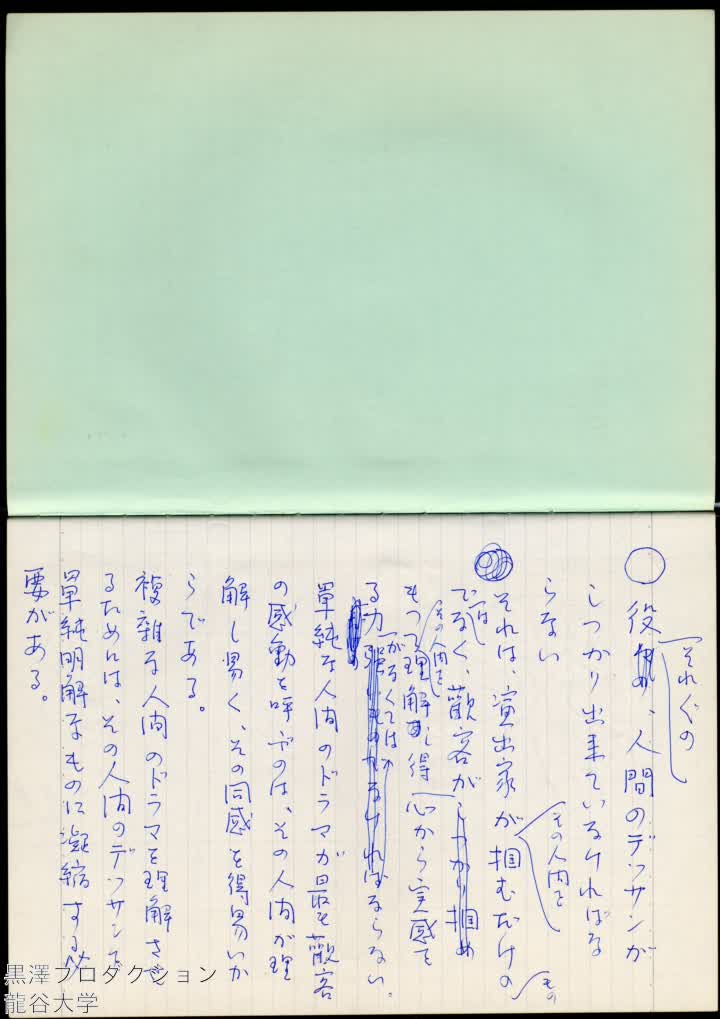 ○ 役々の、人間のデッサンが
それ〲の
しつかり出来ていなければな
らない
それは、演出家が掴むだけの
その人間を
もの
ではなく、觀客がしつかり掴め
その人間を
もつて理解し得 心から実感を
る力強いものでなければならない。
がなくてはな
單純な人間のドラマが最も觀客
の感動を呼ぶのは、その人間が理
解し易く、その同感を得易いか
らである。
複雜な人間のドラマを理解させ
るためには、その人間のデッサンを
單純明解なものに凝縮する必
要がある。
黒澤プロダクション
龍谷大学